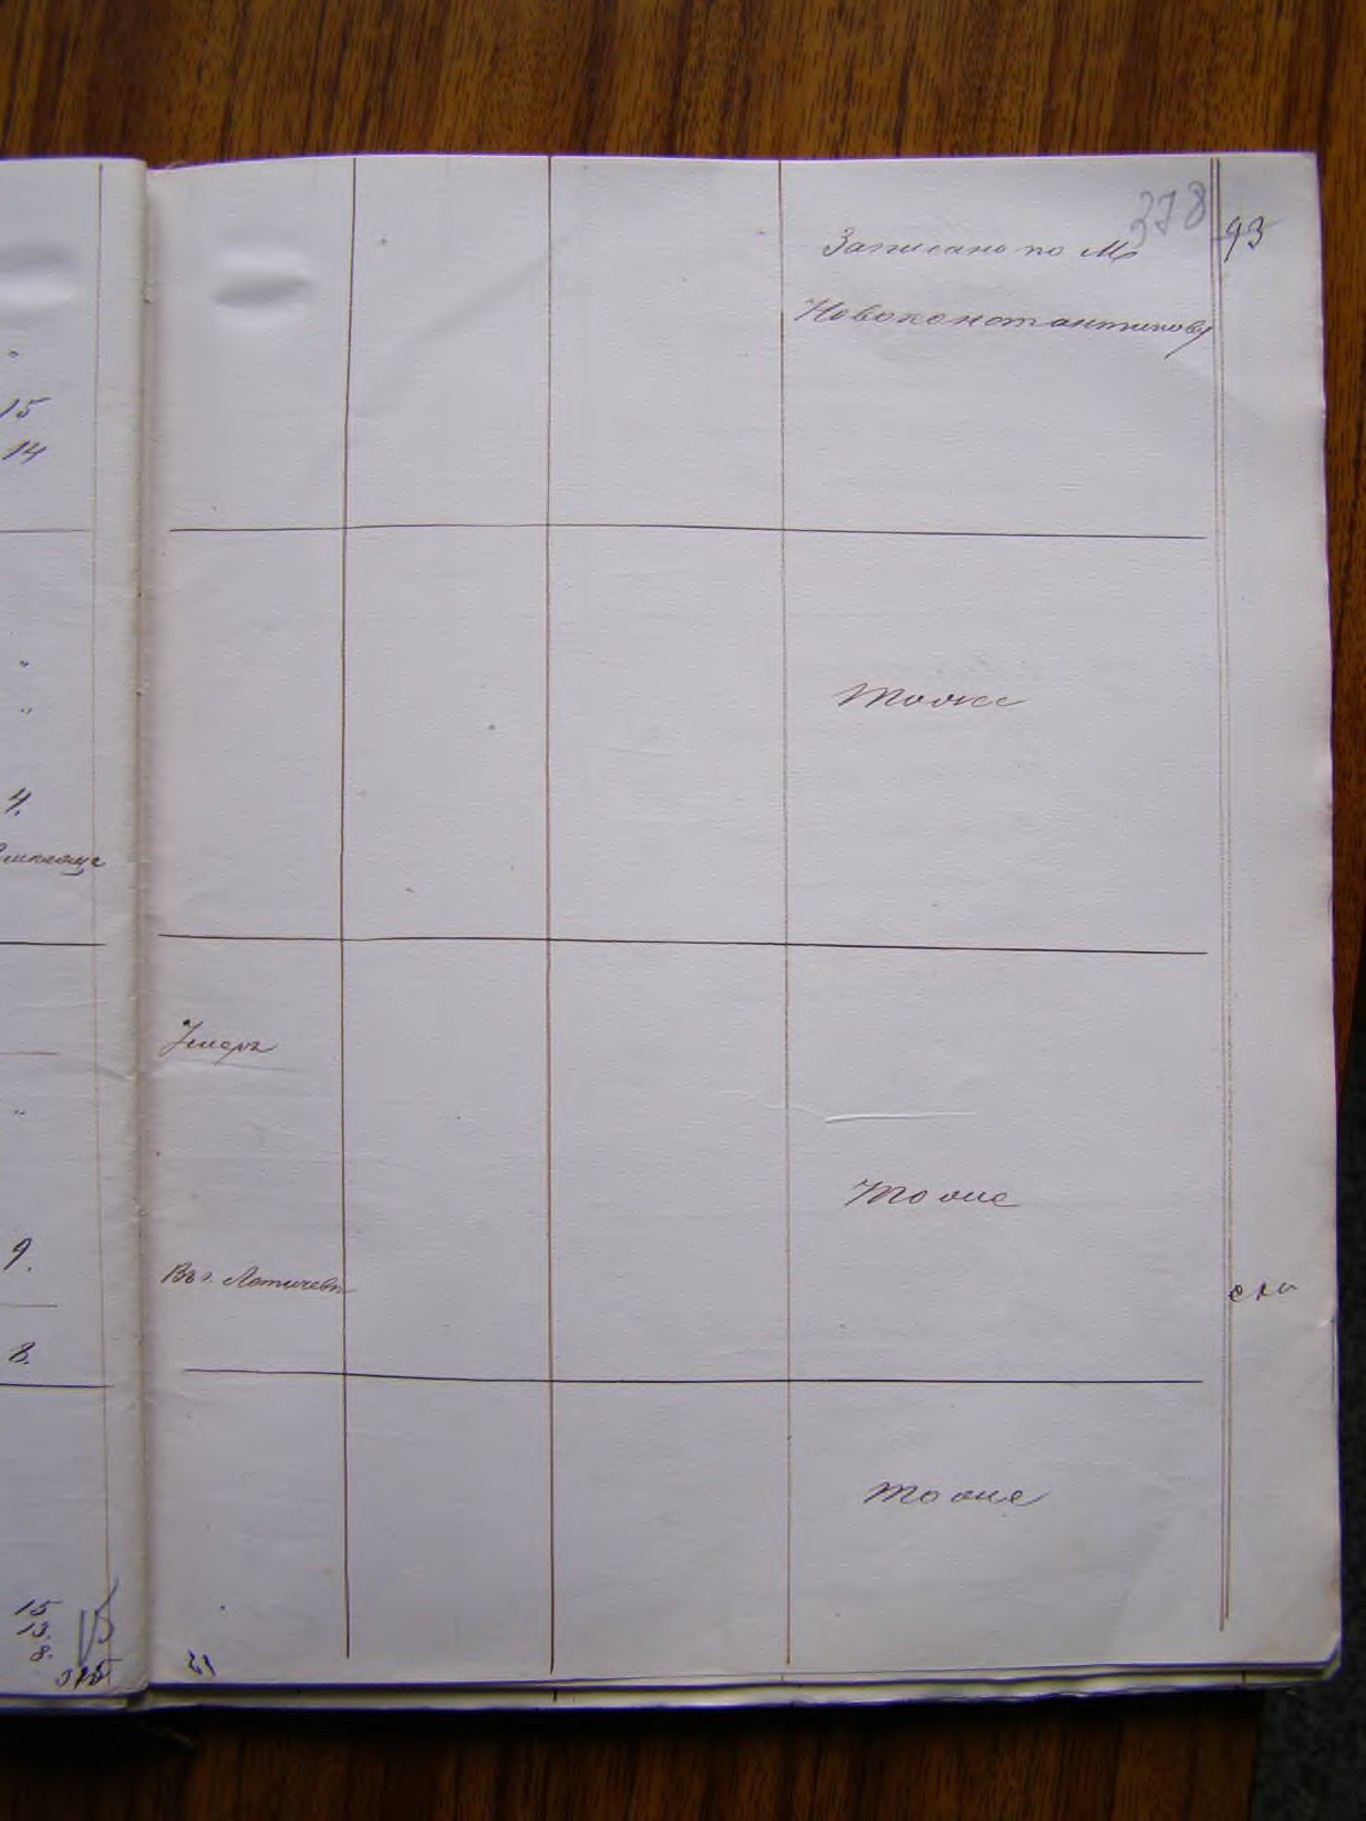 378
93
Записано по М
Новоконстантинову
"
15
14
"
"
Тоже
4.
Умеръ
"
Тоже
9.
Въ г. Летичевѣ
8.
Тоже
15
13.
8.
21